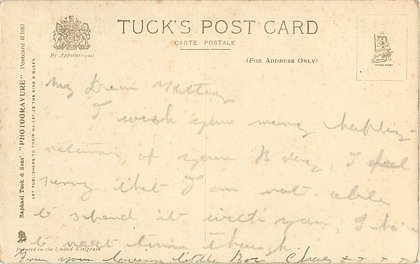 TUCK'S POST CARD
CARTE POSTALE
By Appointment
(FOR ADDRESS ONLY)
Raphael Tuck & Sons' "PHOTOGRAVURE" Postcard R
ART PUBLISHERS TO THEIR MAJESTIES THE KING & QUEEN.
My Dear
I wish you many happy
returns of your B day, I feel
sorry that I am not able
to spend it with you, I
to next time though.
Printed in the United Kingdom
From your loving little